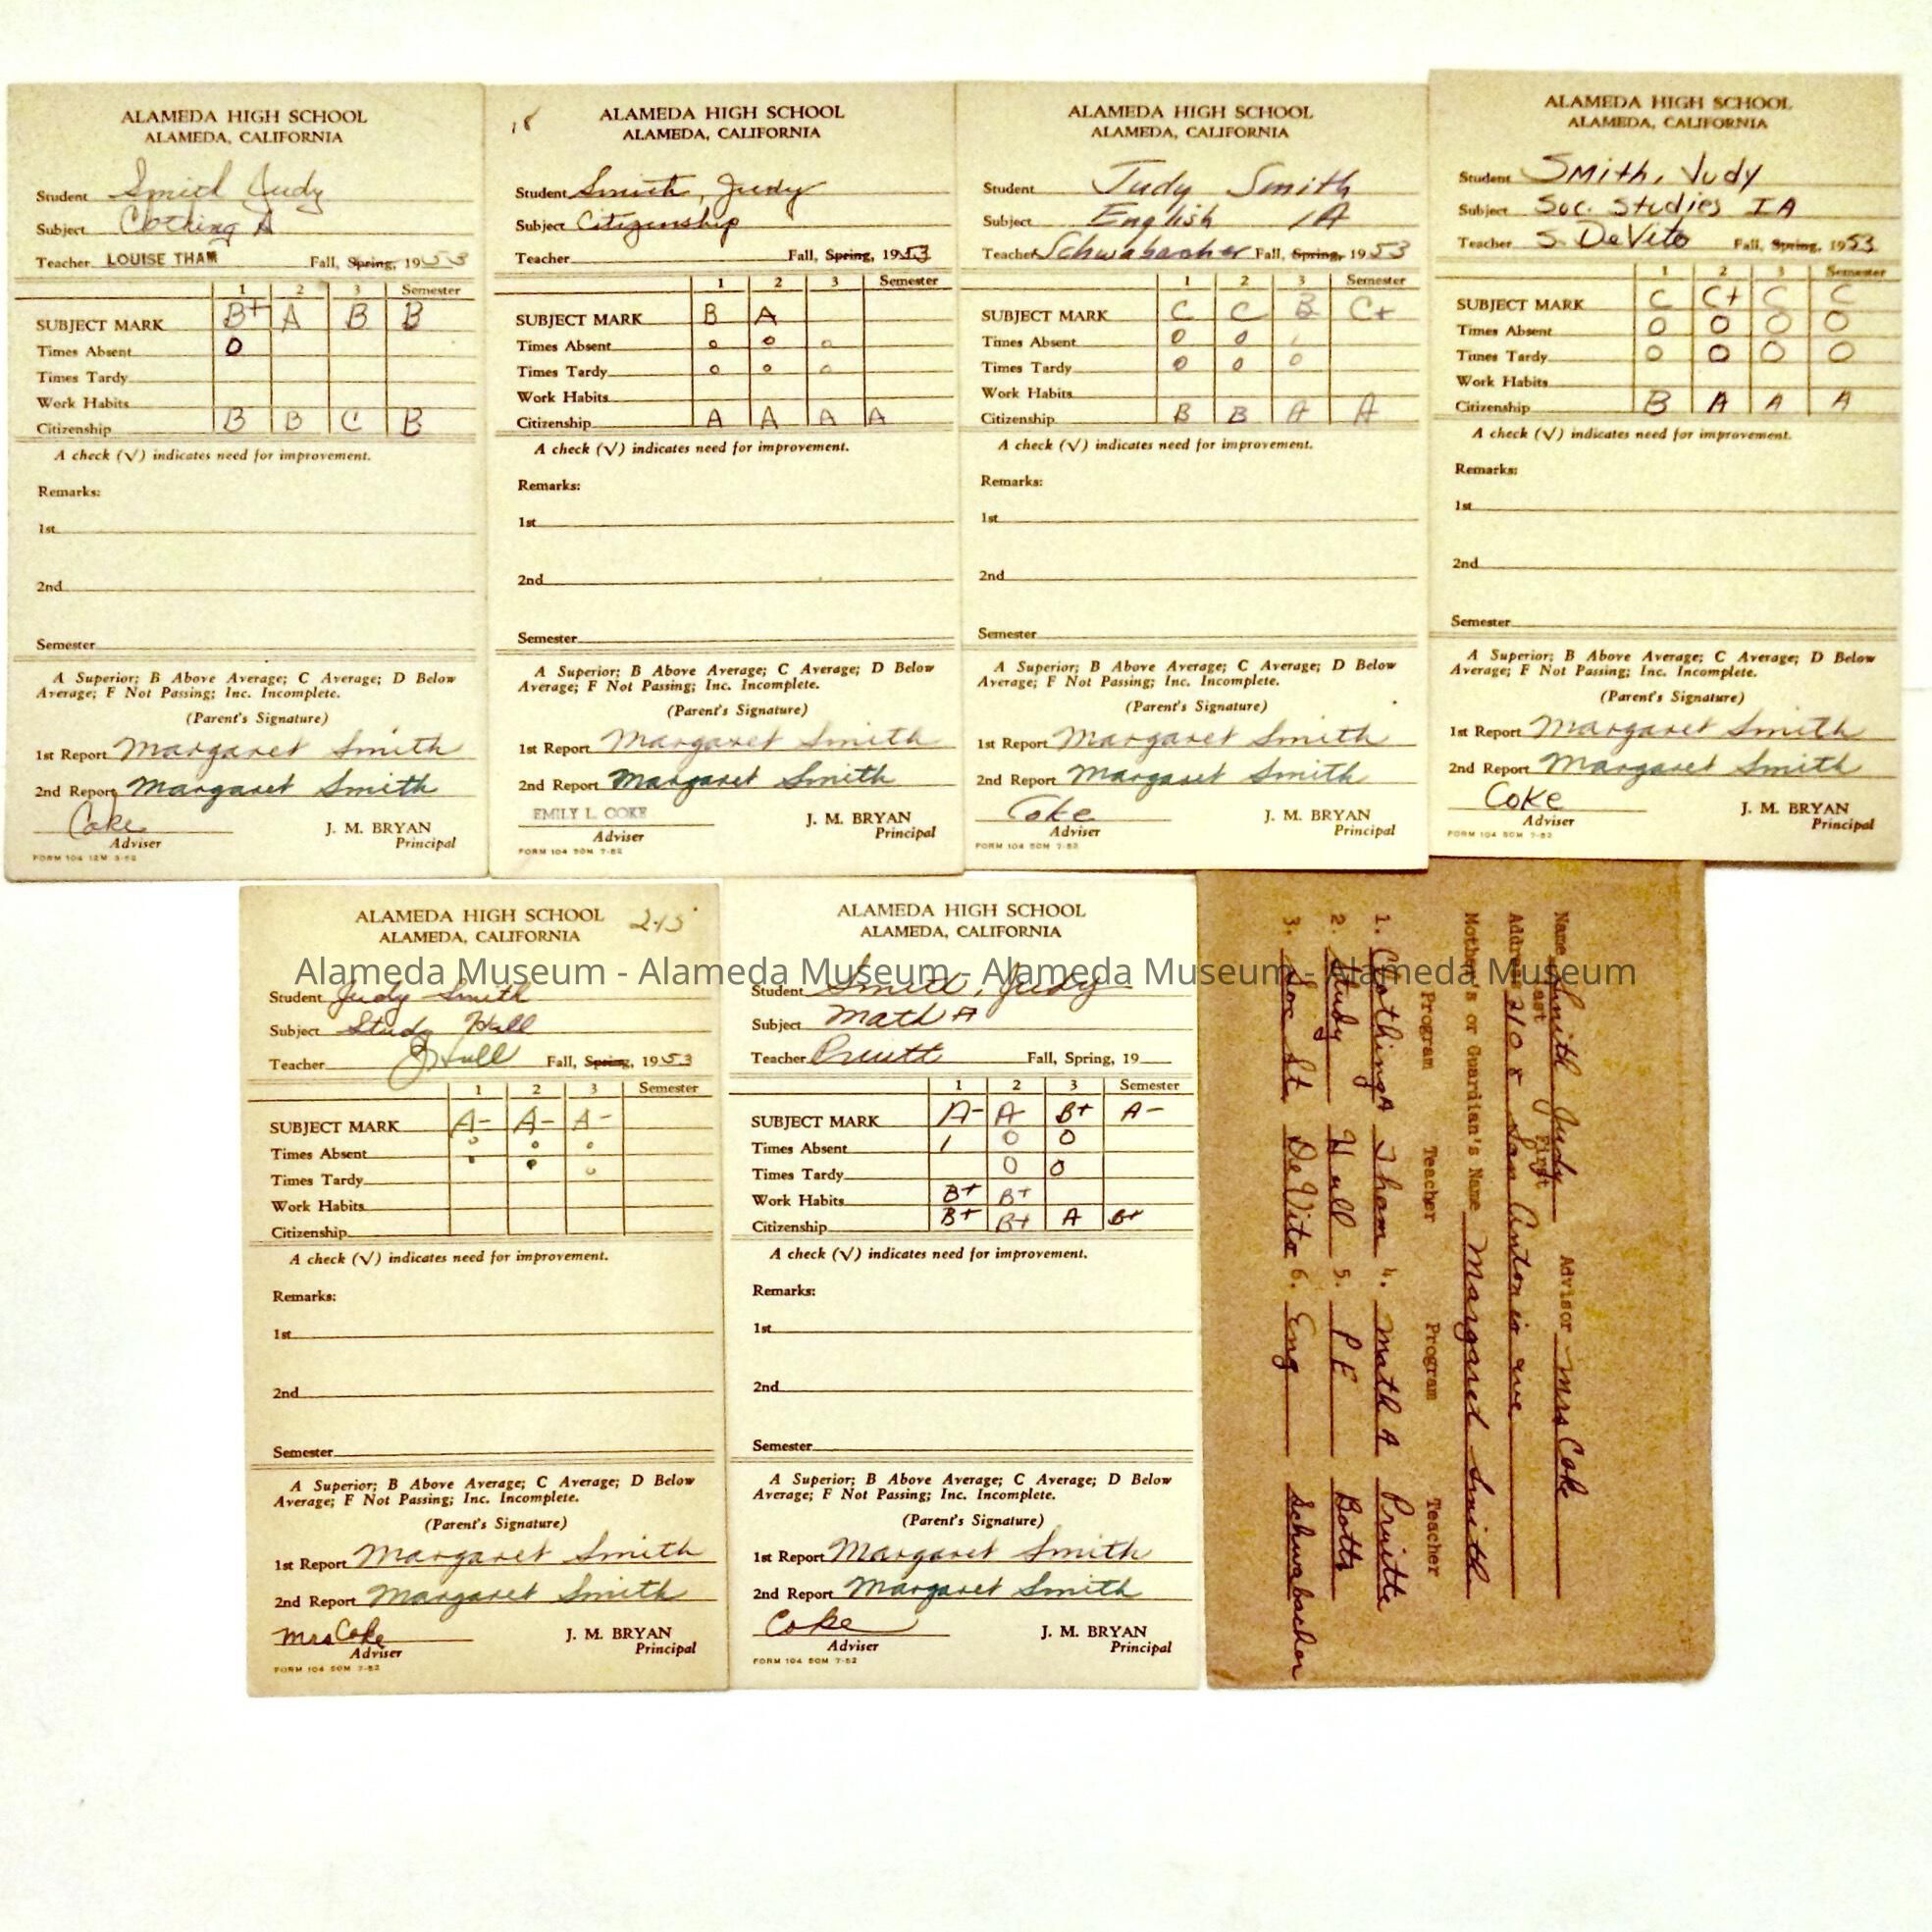 ALAMEDA HIGH SCHOOL
ALAMEDA, CALIFORNIA
Student Smith Judy
Subject Clothing A
Teacher LOUISE THAM Fall, Spring, 1953
1 2 3 Semester
SUBJECT MARK B+ A B B
Times Absent 0
Times Tardy
Work Habits
Citizenship B B C B
A check (√) indicates need for improvement.
Remarks:
1st
2nd
Semester
A Superior; B Above Average; C Average; D Below
Average; F Not Passing; Inc. Incomplete.
(Parent's Signature)
1st Report Margaret Smith
2nd Report Margaret Smith
Coke J. M. BRYAN
Adviser Principal
FORM 104 12M 3-52
18
ALAMEDA HIGH SCHOOL
ALAMEDA, CALIFORNIA
Student Smith, Judy
Subject Citizenship
Teacher Fall, Spring, 1953
1 2 3 Semester
SUBJECT MARK B A
Times Absent 0 0 0
Times Tardy 0 0 0
Work Habits
Citizenship A A A A
A check (√) indicates need for improvement.
Remarks:
1st
2nd
Semester
A Superior; B Above Average; C Average; D Below
Average; F Not Passing; Inc. Incomplete.
(Parent's Signature)
1st Report Margaret Smith
2nd Report Margaret Smith
EMILY L. COKE J. M. BRYAN
Adviser Principal
FORM 104 50M 7-52
ALAMEDA HIGH SCHOOL
ALAMEDA, CALIFORNIA
Student Judy Smith
Subject English 1A
Teacher Schwabacher Fall, Spring, 1953
1 2 3 Semester
SUBJECT MARK C C B C+
Times Absent 0 0 1
Times Tardy 0 0 0
Work Habits
Citizenship B B A A
A check (√) indicates need for improvement.
Remarks:
1st
2nd
Semester
A Superior; B Above Average; C Average; D Below
Average; F Not Passing; Inc. Incomplete.
(Parent's Signature)
1st Report Margaret Smith
2nd Report Margaret Smith
Coke J. M. BRYAN
Adviser Principal
FORM 104 50M 7-52
ALAMEDA HIGH SCHOOL
ALAMEDA, CALIFORNIA
Student Smith, Judy
Subject Soc. Studies IA
Teacher S. DeVito Fall, Spring, 1953
1 2 3 Semester
SUBJECT MARK C C+ C C
Times Absent 0 0 0 0
Times Tardy 0 0 0 0
Work Habits
Citizenship B A A A
A check (√) indicates need for improvement.
Remarks:
1st
2nd
Semester
A Superior; B Above Average; C Average; D Below
Average; F Not Passing; Inc. Incomplete.
(Parent's Signature)
1st Report Margaret Smith
2nd Report Margaret Smith
Coke J. M. BRYAN
Adviser Principal
FORM 104 50M 7-52
ALAMEDA HIGH SCHOOL
ALAMEDA, CALIFORNIA
Student Judy Smith
Subject Study Hall
Teacher Hull Fall, Spring, 1953
1 2 3 Semester
SUBJECT MARK A- A- A-
Times Absent 0 0 0
Times Tardy
Work Habits
Citizenship
A check (√) indicates need for improvement.
Remarks:
1st
2nd
Semester
A Superior; B Above Average; C Average; D Below
Average; F Not Passing; Inc. Incomplete.
(Parent's Signature)
1st Report Margaret Smith
2nd Report Margaret Smith
Mrs Coke J. M. BRYAN
Adviser Principal
FORM 104 50M 7-52
ALAMEDA HIGH SCHOOL
ALAMEDA, CALIFORNIA
Student Smith, Judy
Subject Math A
Teacher Pruitt Fall, Spring, 19
1 2 3 Semester
SUBJECT MARK A- A B+ A-
Times Absent 1 0 0
Times Tardy 0 0
Work Habits B+ B+
Citizenship B+ B+ A B+
A check (√) indicates need for improvement.
Remarks:
1st
2nd
Semester
A Superior; B Above Average; C Average; D Below
Average; F Not Passing; Inc. Incomplete.
(Parent's Signature)
1st Report Margaret Smith
2nd Report Margaret Smith
Coke J. M. BRYAN
Adviser Principal
FORM 104 50M 7-52
Name Smith Judy Advisor Mrs Coke
Last First
Address 2108 San Antonio ave
Mother's or Guardian's Name Margaret Smith
Program Teacher Program Teacher
1. Clothing A Tham 4. Math A Pruitte
2. Study Hull 5. P E Botts
3. Soc St DeVito 6. Eng Schwabacher
Alameda Museum - Alameda Museum - Alameda Museum - Alameda Museum